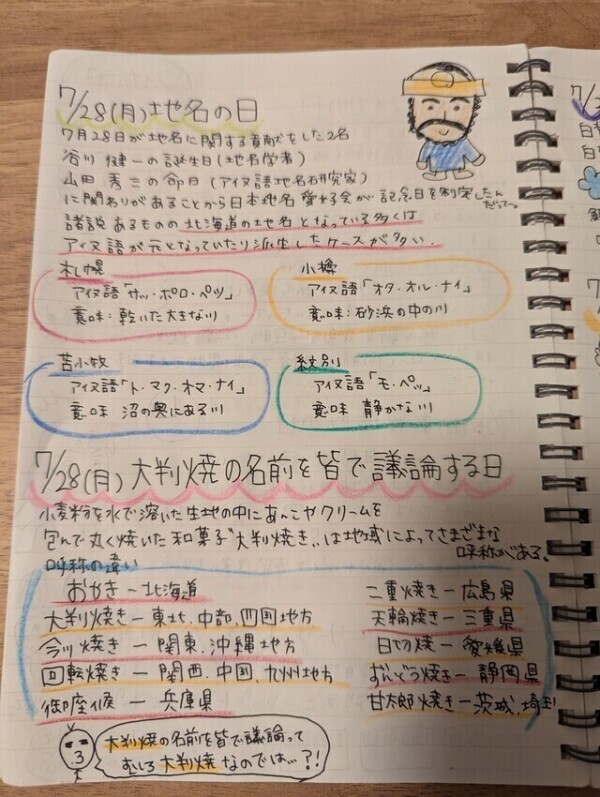 7/28(月)地名の日
7月28日が地名に関する貢献をした2名
谷川 健一の誕生日(地名学者)
山田 秀三の命日(アイヌ語地名研究家)
に関わりがあることから日本地名愛好会が記念日を制定したんだって〜。
諸説あるものの北海道の地名となっている多くは
アイヌ語が元となっていたり派生したケースが多い.
札幌
アイヌ語「サッ・ポロ・ペツ」
意味:乾いた大きな川
小樽
アイヌ語「オタ・オル・ナイ」
意味:砂浜の中の川
苫小牧
アイヌ語「ト・マク・オマ・ナイ」
意味 沼の奥にある川
紋別
アイヌ語「モ・ペッ」
意味 静かな川
7/28(月)大判焼の名前を皆で議論する日
小麦粉を水で溶いた生地の中にあんこやクリームを
包んで丸く焼いた和菓子"大判焼き"は地域によってさまざまな
呼称がある。
呼称の違い
おやき ー 北海道
大判焼き ー 東北、中部、四国地方
今川焼き ー 関東、沖縄地方
回転焼き ー 関西、中国、九州地方
御座候 ー 兵庫県
二重焼き ー 広島県
天輪焼き ー 三重県
日切焼 ー 愛媛県
ずんどう焼き ー 静岡県
甘太郎焼き ー 茨城、埼玉
大判焼の名前を皆で議論って
むしろ大判焼なのでは…?!